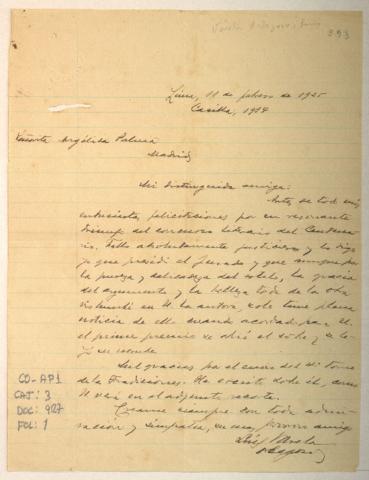 393
Lima, 11 de febrero de 1925
Casilla, 1914
Señorita Angélica Palma
Madrid
Mi distinguida amiga:
Ante todo mis
entusiastas felicitaciones por su resonante
triunfo del concurso literario del Centena
rio. Fallo absolutamente justiciero y lo digo
yo que presidí el Jurado y que aunque por
la pureza y delicadeza del estilo, la gracia
del argumento y la belleza toda de la obra
en Ud. la autora, sólo tuve plena
noticia de ello cuando acordado para él
el primer premio se abrió el sobre
Mil gracias por el envío del tomo
de las Tradiciones. He escrito sobre él, como
Ud verá en el adjunto recorte.
Créame siempre con toda admi-
ración y simpatía, su amigo
Luis Varela
Orbegoso
CO-AP1
CAJ: 3
DOC: 927
FOL: 1